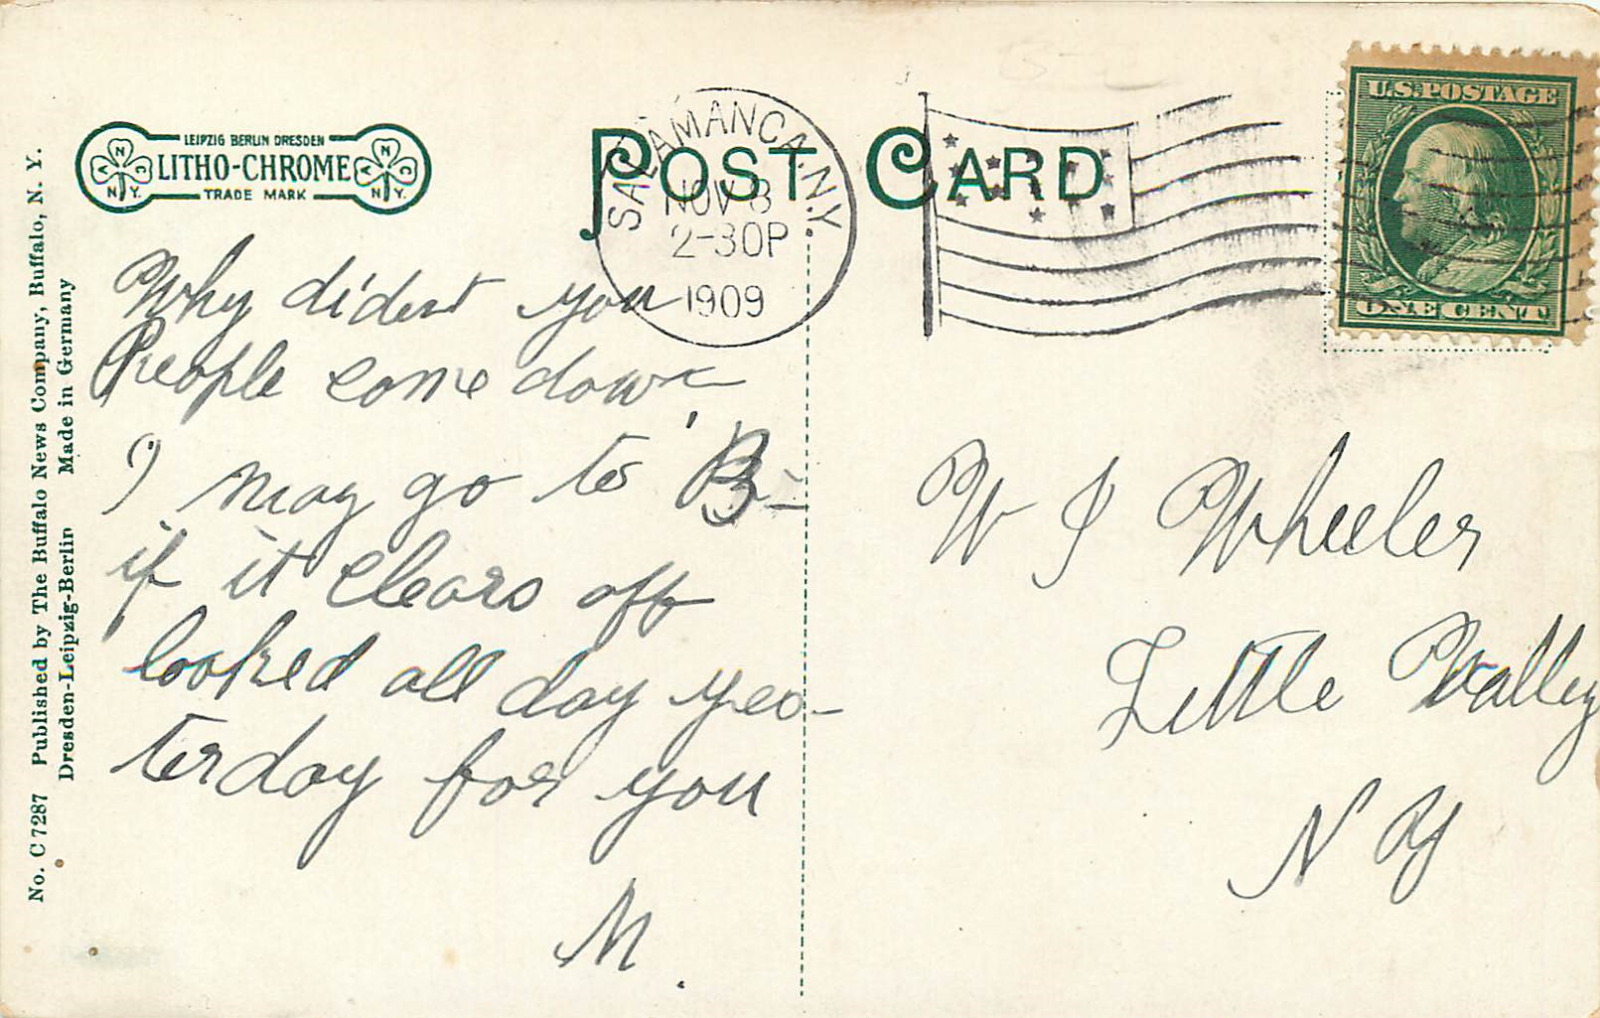 LEIPZIG BERLIN DRESDEN
LITHO-CHROME
TRADE MARK
N.Y.
N.Y.
POST CARD
SALAMANCA. N.Y.
NOV 8
2-30P
1909
U.S. POSTAGE
ONE CENT
Why dident you
People come down
I may go to B-
if it clears off
looked all day yes-
terday for you
M.
W J Wheeler
Little Valley
N Y
No. C 7287 Published by The Buffalo News Company, Buffalo, N. Y.
Dresden-Leipzig-Berlin Made in Germany